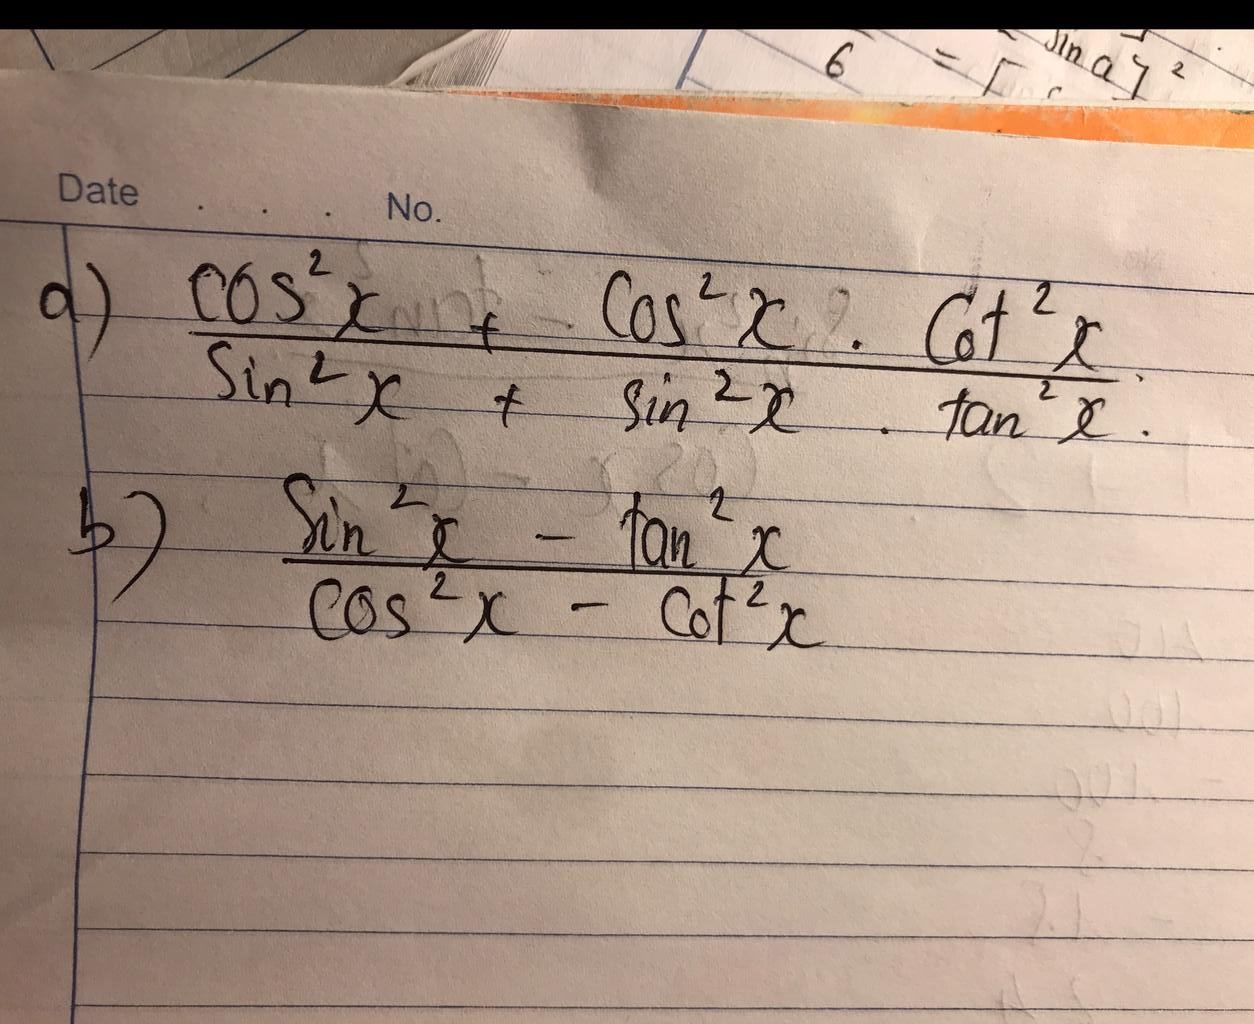 6 = [ sin a ]²
Date . . . No.
a) cos²x + cos²x . cot²x
sin²x + sin²x . tan²x.
b) sin²x - tan²x
cos²x - cot²x